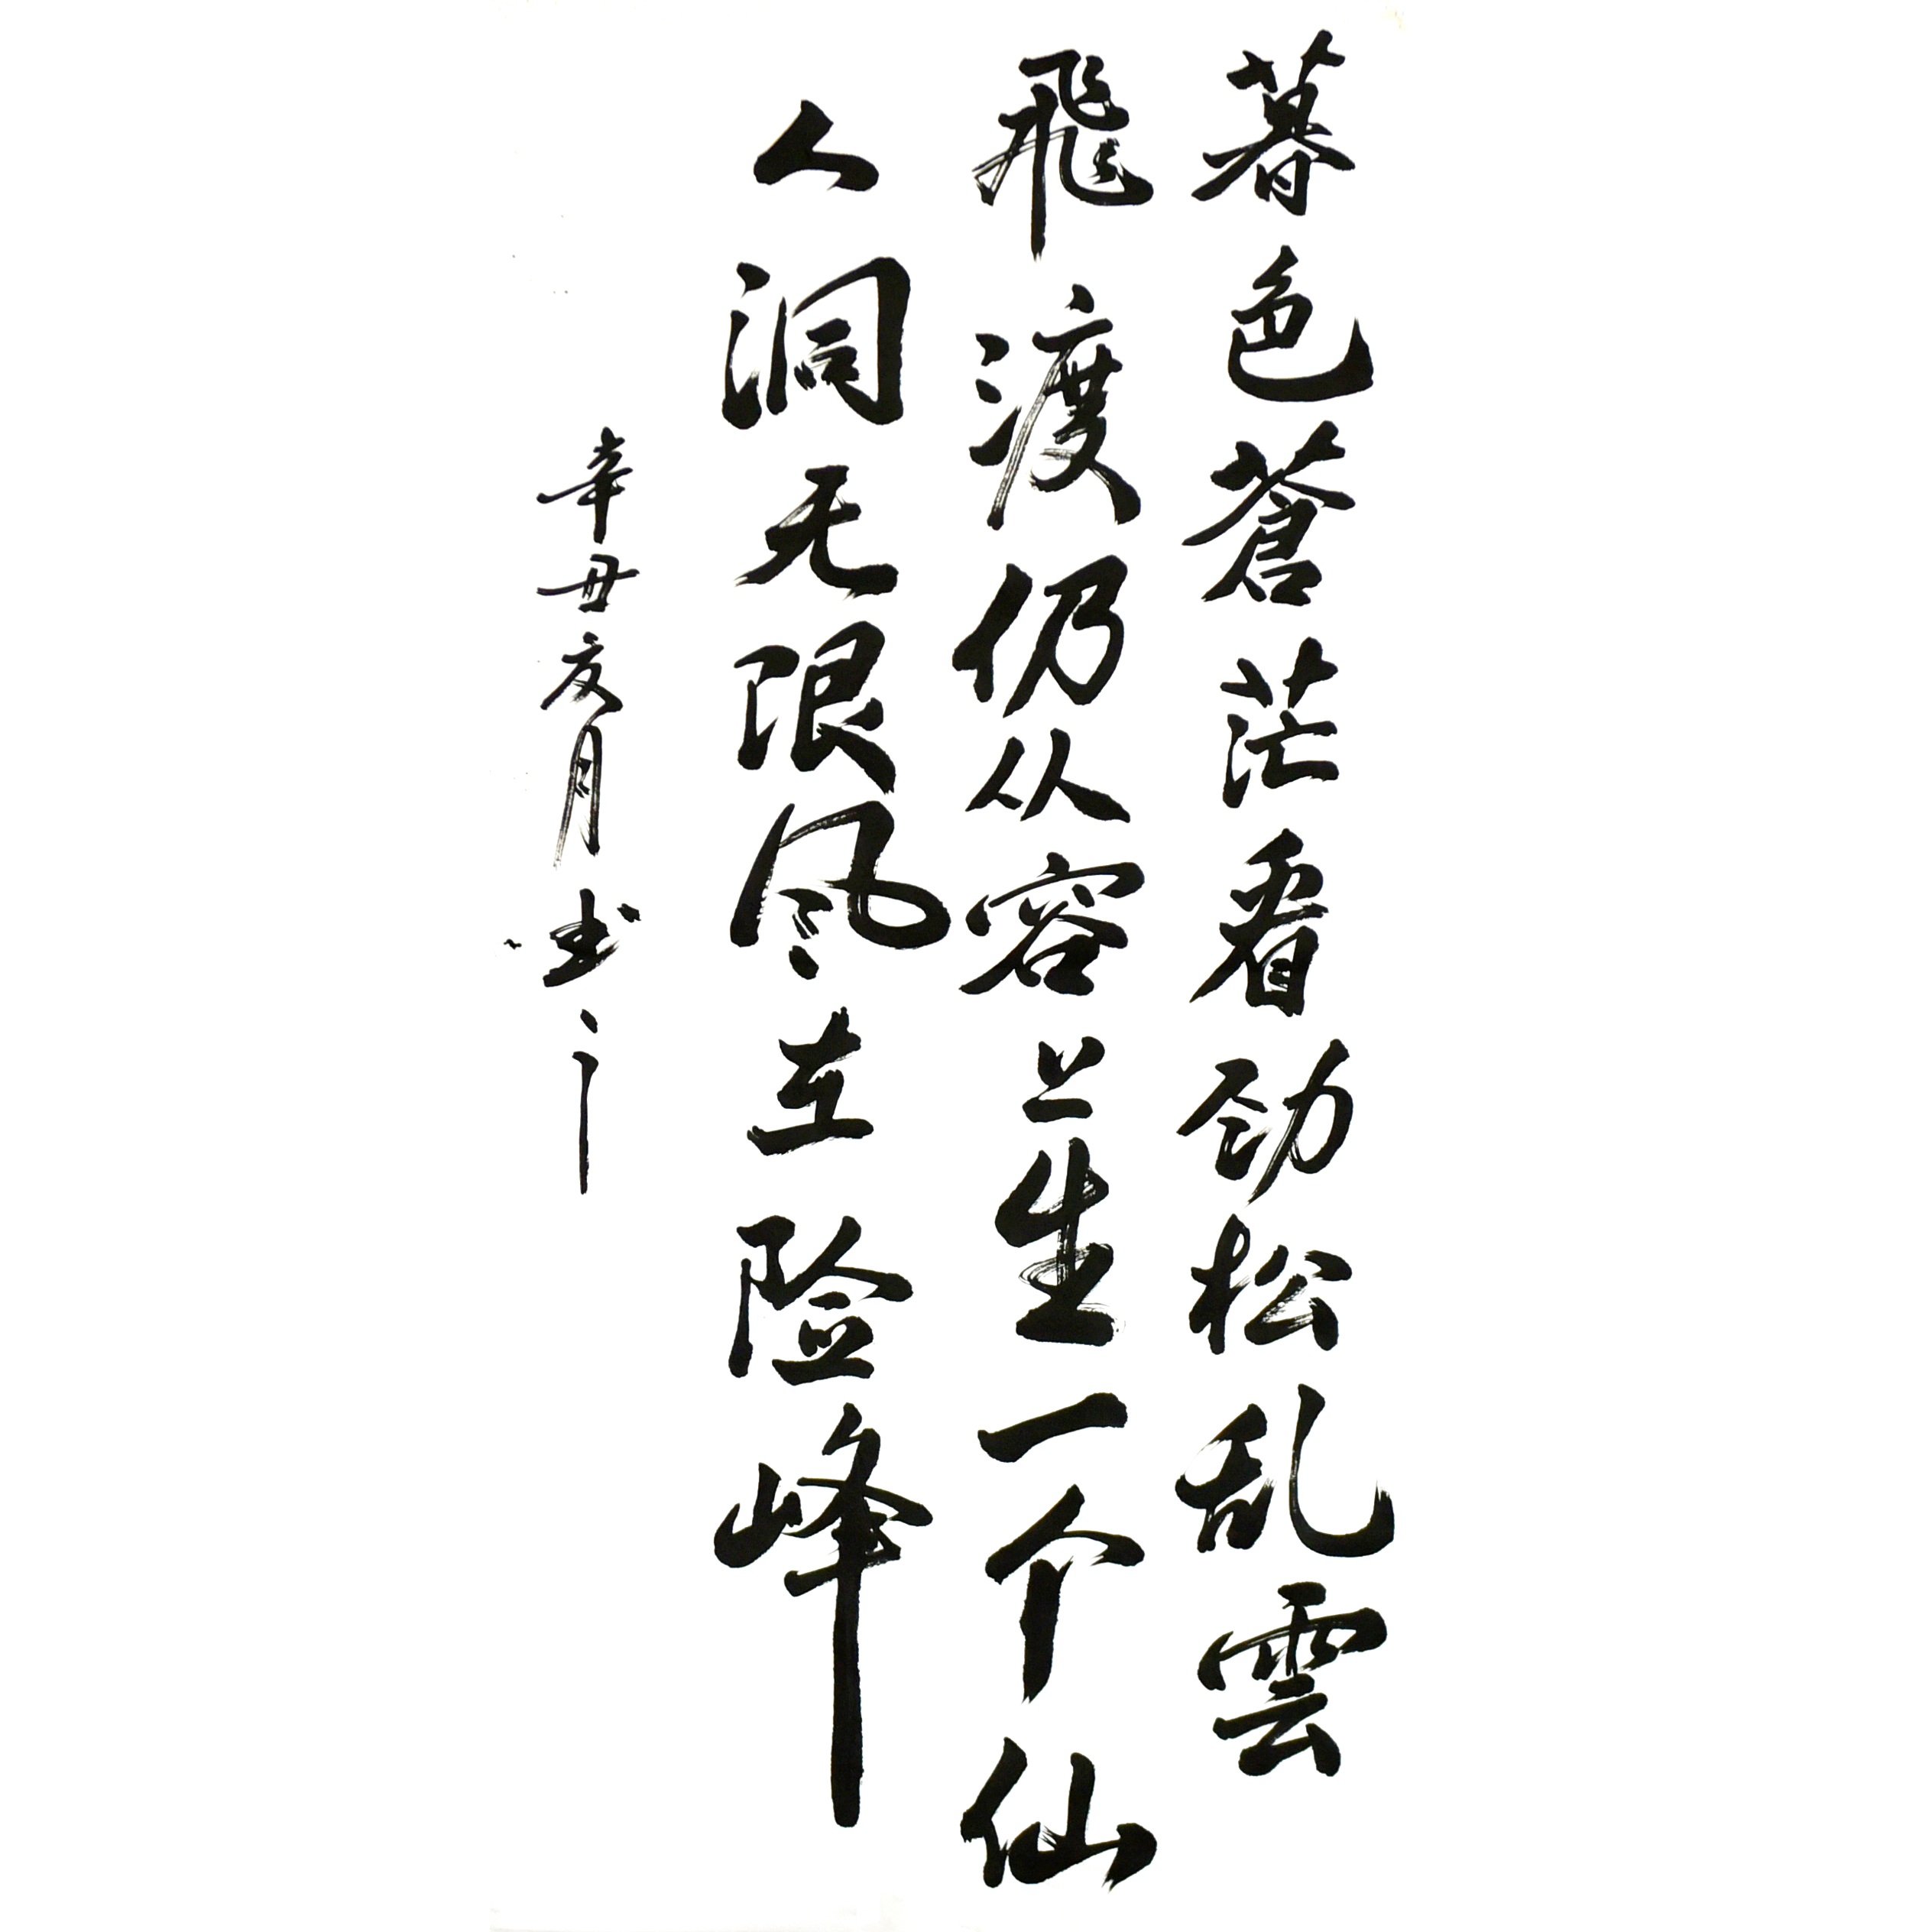 暮色蒼茫看劲松乱雲
飛渡仍从容天生一个仙
人洞无限风在险峰
辛丑夏月书